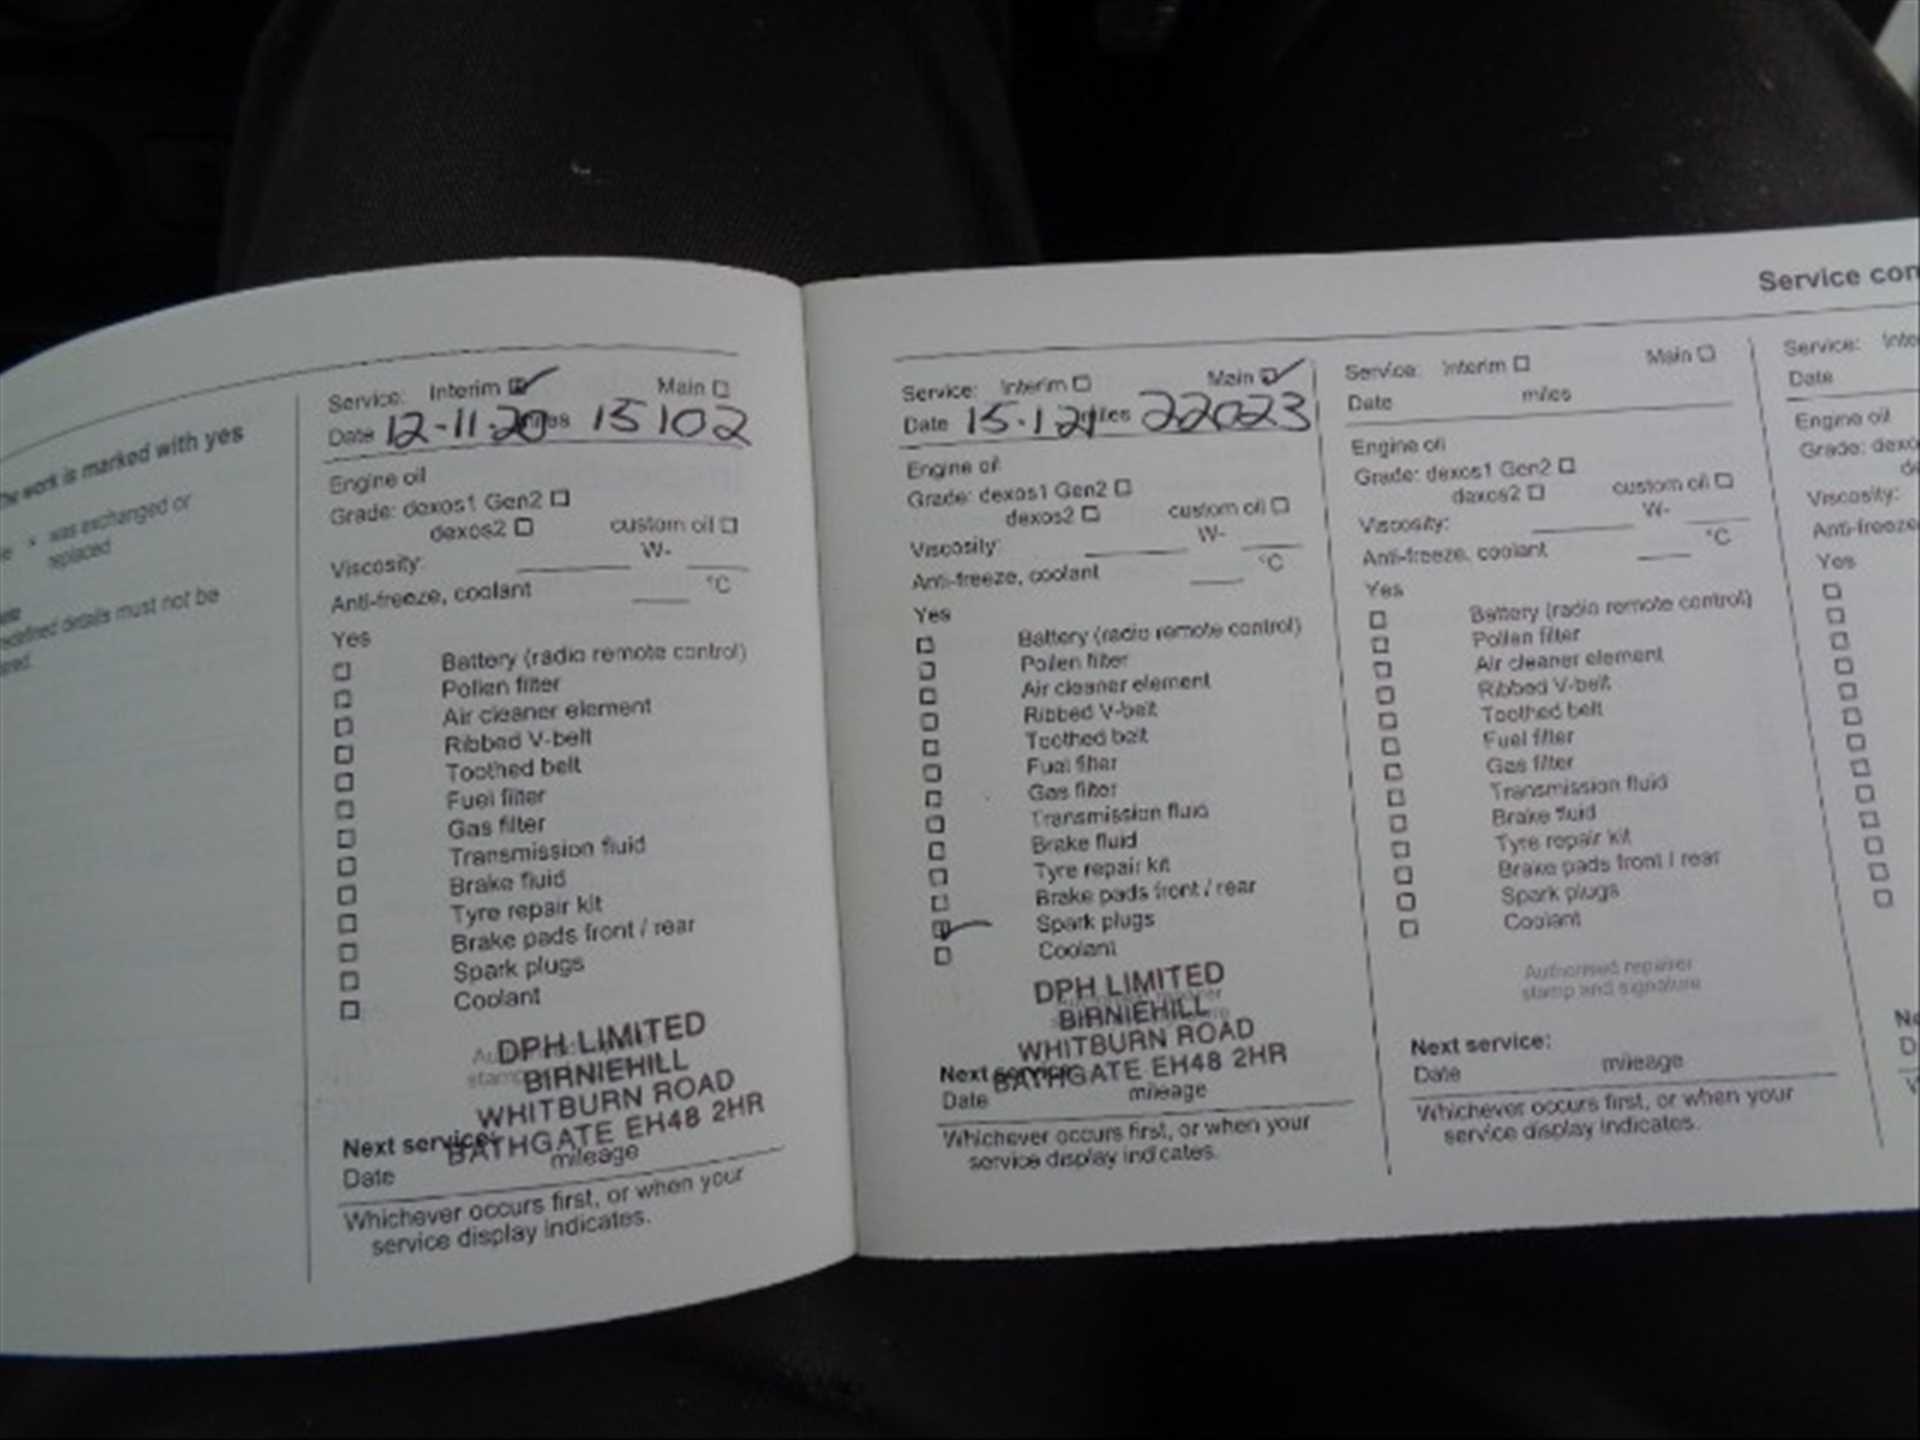 Service con
he work is marked with yes
was exchanged or
replaced
details must not be
Service: Interim Main
Date 12-11-20 miles 15102
Engine oil
Grade: dexos1 Gen2
dexos2 custom oil
Viscosity: W-
Anti-freeze, coolant °C
Yes
Battery (radio remote control)
Pollen filter
Air cleaner element
Ribbed V-belt
Toothed belt
Fuel filter
Gas filter
Transmission fluid
Brake fluid
Tyre repair kit
Brake pads front / rear
Spark plugs
Coolant
DPH LIMITED
BIRNIEHILL
WHITBURN ROAD
BATHGATE EH48 2HR
Next service:
Date mileage
Whichever occurs first, or when your
service display indicates.
Service: Interim Main
Date 15.1.21 miles 22023
Engine oil
Grade: dexos1 Gen2
dexos2 custom oil
Viscosity: W-
Anti-freeze, coolant °C
Yes
Battery (radio remote control)
Pollen filter
Air cleaner element
Ribbed V-belt
Toothed belt
Fuel filter
Gas filter
Transmission fluid
Brake fluid
Tyre repair kit
Brake pads front / rear
Spark plugs
Coolant
DPH LIMITED
BIRNIEHILL
WHITBURN ROAD
BATHGATE EH48 2HR
Next service:
Date mileage
Whichever occurs first, or when your
service display indicates.
Service: Interim Main
Date miles
Engine oil
Grade: dexos1 Gen2
dexos2 custom oil
Viscosity: W-
Anti-freeze, coolant °C
Yes
Battery (radio remote control)
Pollen filter
Air cleaner element
Ribbed V-belt
Toothed belt
Fuel filter
Gas filter
Transmission fluid
Brake fluid
Tyre repair kit
Brake pads front / rear
Spark plugs
Coolant
Authorised repairer
stamp and signature
Next service:
Date mileage
Whichever occurs first, or when your
service display indicates.
Service: Inte
Date
Engine oil
Grade: dexo
de
Viscosity:
Anti-freeze
Yes
Ne
D